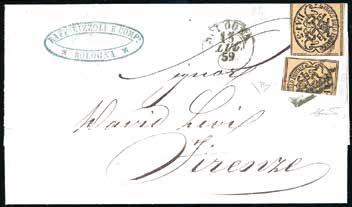 RAFF. RIZZOLI E COMP.
BOLOGNA
BOLOGNA
13
LUG.
59
Signor
David Levi
Firenze